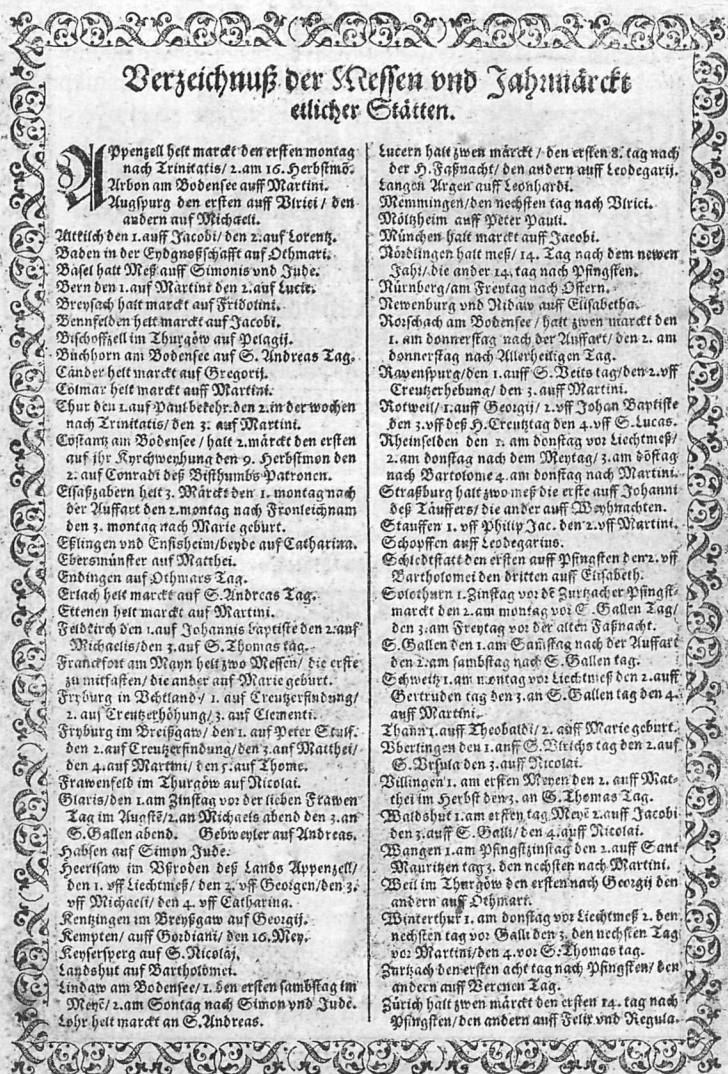 Verzeichnuß der Messen vnd Jahrmärckt
etlicher Stätten.
APpenzell helt marckt den ersten montag
nach Trinitatis/ 2. am 16. Herbstmō.
Arbon am Bodensee auff Martini.
Augspurg den ersten auff Vlrici / den
andern auf Michaeli.
Altkilch den 1. auff Jacobi/ den 2. auf Lorentz.
Baden in der Eydgnoßschafft auf Othmari.
Basel halt Meß auff Simonis vnd Jude.
Bern den 1. auf Martini den 2. auf Lucie.
Breysach halt marckt auf Fridolini.
Bennfelden helt marckt auf Jacobi.
Bischoffzell im Thurgöw auf Pelagij.
Büchhorn am Bodensee auf S. Andreas Tag.
Cander helt marckt auf Gregorij.
Colmar helt marckt auff Martini.
Chur den 1. auf Paul bekehr. den 2. in der wochen
nach Trinitatis/ den 3. auf Martini.
Costantz am Bodensee / halt 2. märckt den ersten
auf jhr Kyrchweyhung den 9. Herbstmon den
2. auf Conradi deß Bisthumbs Patronen.
Elsaßzabern helt 3. Märckt den 1. montag nach
der Auffart den 2. montag nach Fronleichnam
den 3. montag nach Marie geburt.
Eßlingen vnd Ensisheim/ beyde auf Catharina.
Ebersmünster auf Matthei.
Endingen auf Othmars Tag.
Erlach helt marckt auf S. Andreas Tag.
Ettenen helt marckt auf Martini.
Feldkirch den 1. auf Johannis baptiste den 2. auf
Michaelis/ den 3. auf S. Thomas tag.
Franckfort am Mayn helt zwo Messen/ die erste
zu mitfasten/ die ander auf Marie geburt.
Fryburg in Vchtland/ 1. auf Creutzerfindung/
2. auf Creutzerhöhung/ 3. auf Clementi.
Fryburg im Breißgaw/ den 1. auf Peter Stulf.
den 2. auf Creutzerfindung/ den 3. auf Matthei/
den 4. auf Martini/ den 5. auf Thome.
Frawenfeld im Thurgöw auf Nicolai.
Glaris/ den 1. am Zinstag vor der lieben Frawen
Tag im Augstē/ 2. an Michaels abend den 3. an
S. Gallen abend. Gebweyler auf Andreas.
Habsen auf Simon Jude.
Heerisaw im Vßroden deß Lands Appenzell/
den 1. vff Liechtmeß/ den 2. vff Georgen/ den 3.
vff Michaeli/ den 4. vff Catharina.
Kentzingen im Breyßgaw auf Georgij.
Kempten/ auff Gordiani/ den 16. Mey.
Keysersperg auf S. Nicolaj.
Landshut auf Bartholomei.
Lindaw am Bodensee/ 1. den ersten sambstag im
Meyē/ 2. am Sontag nach Simon vnd Jude.
Lohr helt marckt an S. Andreas.
Lucern halt zwen märckt / den ersten 8. tag nach
der H. Faßnacht/ den andern auff Leodegarij.
Langen Argen auff Leonhardi.
Memmingen/ den nechsten tag nach Vlrici.
Möltzheim auff Peter Pauli.
München halt marckt auff Jacobi.
Nördlingen halt meß/ 14. Tag nach dem newen
Jahr/ die ander 14. tag nach Pfingsten.
Nürnberg/ am Freytag nach Ostern.
Newenburg vnd Nidaw auff Elisabetha.
Rorschach am Bodensee / halt zwen marckt den
1. am donnerstag nach der Auffart/ den 2. am
donnerstag nach Allerheiligen Tag.
Ravenspurg/ den 1. auff S. Veits tag/ den 2. vff
Creutzerhebung/ den 3. auff Martini.
Rotweil/ 1. auff Georgij/ 2. vff Johan Baptiste
den 3. vff deß H. Creutztag den 4. vff S. Lucas.
Rheinfelden den 1. am donstag vor Liechtmeß/
2. am donstag nach dem Meytag/ 3. am dōstag
nach Bartolome 4. am donstag nach Martini.
Straßburg halt zwo meß die erste auff Johanni
deß Täuffers/ die ander auff Weyhnachten.
Stauffen 1. vff Philip Jac. den 2. vff Martini.
Schopffen auff Leodegarius.
Schledtstatt den ersten auff Pfingsten den 2. vff
Bartholomei den dritten auff Elisabeth.
Solothurn 1. Zinstag vor dē Zurtzacher Pfingst-
marckt den 2. am montag vor S. Gallen Tag/
den 3. am Freytag vor der alten Faßnacht.
S. Gallen den 1. am Samstag nach der Auffart
den 2. am sambstag nach S. Gallen tag.
Schweitz 1. am montag vor Liechtmeß den 2. auff
Gertruden tag den 3. an S. Gallen tag den 4.
auff Martini.
Thann 1. auff Theobaldi/ 2. auff Marie geburt.
Vberlingen den 1. auff S. Vlrichs tag den 2. auf
S. Vrsula den 3. auff Nicolai.
Villingen 1. am ersten Meyen den 2. auff Mat-
thei im Herbst den 3. an S. Thomas Tag.
Waldshut 1. am ersten tag Meyē 2. auff Jacobi
den 3. auff S. Galli/ den 4. auff Nicolai.
Wangen 1. am Pfingstzinstag den 2. auff Sant
Mauritzen tag 3. den nechsten nach Martini.
Weil im Thurgöw den ersten nach Georgij den
andern auff Othmari.
Winterthur 1. am donstag vor Liechtmeß 2. den
nechsten tag vor Galli den 3. den nechsten Tag
vor Martini/ den 4. vor S. Thomas tag.
Zurtzach den ersten acht tag nach Pfingsten/ den
andern auff Verenen Tag.
Zürich halt zwen märckt den ersten 14. tag nach
Pfingsten/ den andern auff Felix vnd Regula.